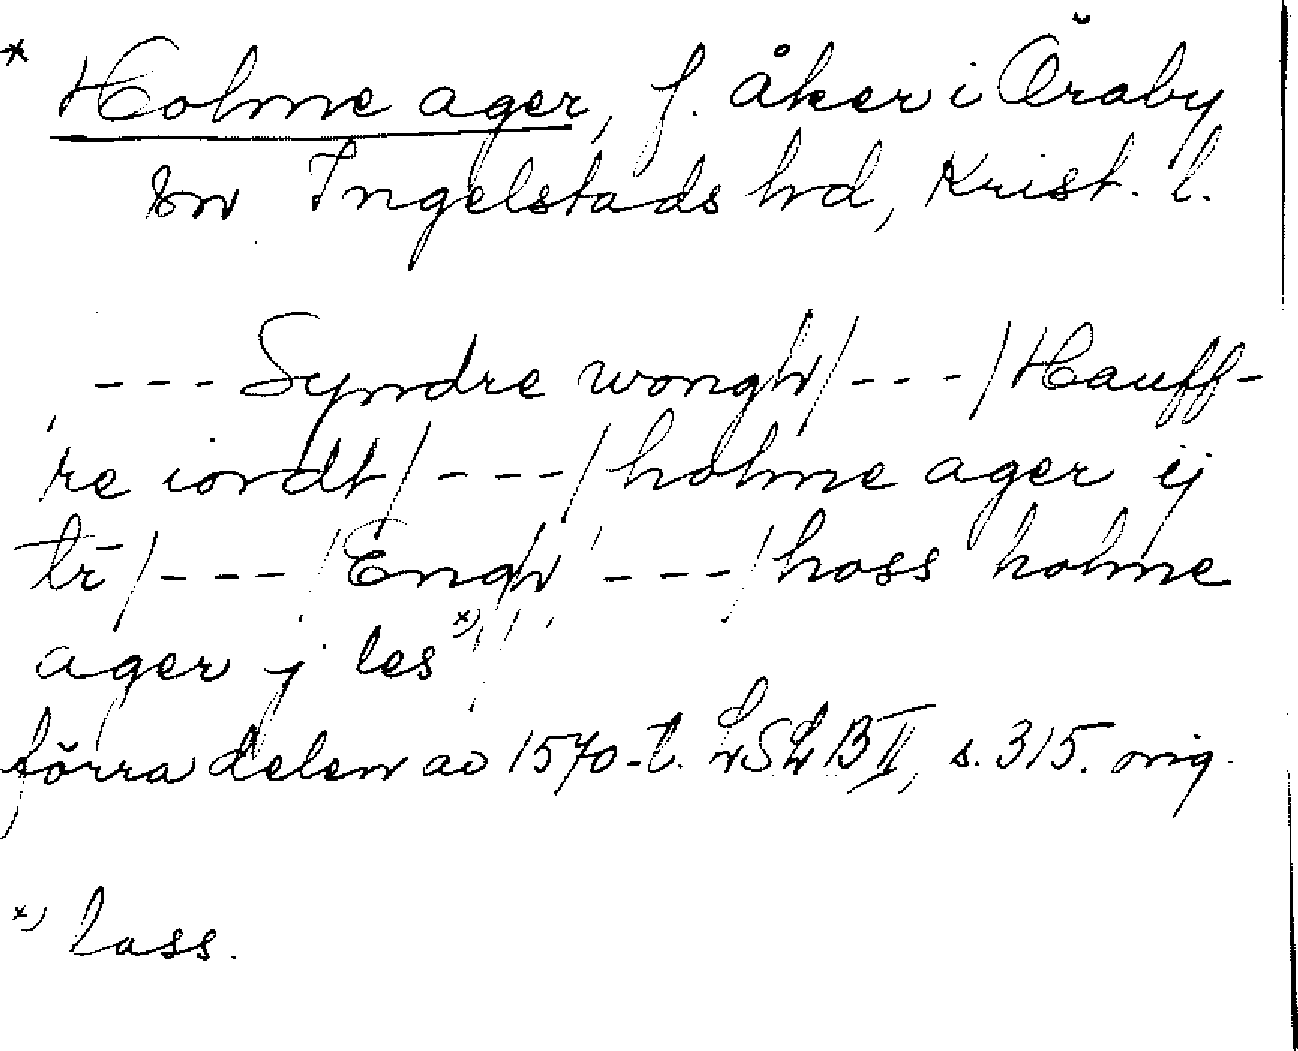 * Holme ager, f. åker i Öraby
sn Ingelstads hd, Krist. l.
--- Syndre wongh/ --- /Hauff-
re iordt/ --- /holme ager ij
tr̄/ --- /Engh/ --- /hoss holme
ager j les x)/
förra delen av 1570-t. LSLB II, s. 315. orig.
x) lass.